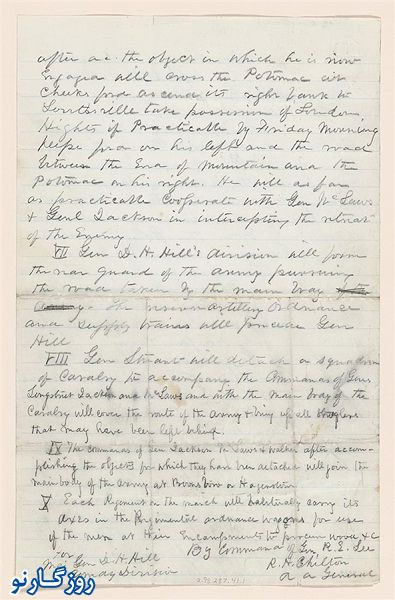 after ac. the object in which he is now
Engaged will cross the Potomac at
Cheeks ford ascend its right bank to
Lovettsville take possession of Loudoun
Heights if Practicable by Friday Morning
Keeps ford on his left and the road
between the End of Mountain and the
Potomac on his right. He will as far
as practicable Cooperate with Gen McLaws
& Genl Jackson in intercepting the retreat
of the Enemy
VII Gen D. H. Hill's division will form
the rear guard of the army pursuing
the road taken by the main body
The reserve artillery Ordnance
and Supply trains will precede Gen
Hill
VIII Gen Stuart will detach a squadron
of Cavalry to accompany the Commands of Gens
Longstreet Jackson and McLaws and with the main body of the
Cavalry will cover the route of the Army & bring up all stragglers
that may have been left behind
IX The commands of Gen Jackson McLaws & Walker after accom-
plishing the objects for which they have been detached will join the
main body of the army at Boonsboro or Hagerstown
X Each Regiment on the march will habitually carry its
axes in the Regimental ordnance wagons for use
of the men at their Encampments to procure wood &c
By Command of Gen R. E. Lee
For
Maj Gen D. H. Hill
R. H. Chilton
Division
A A General
روزگارنو